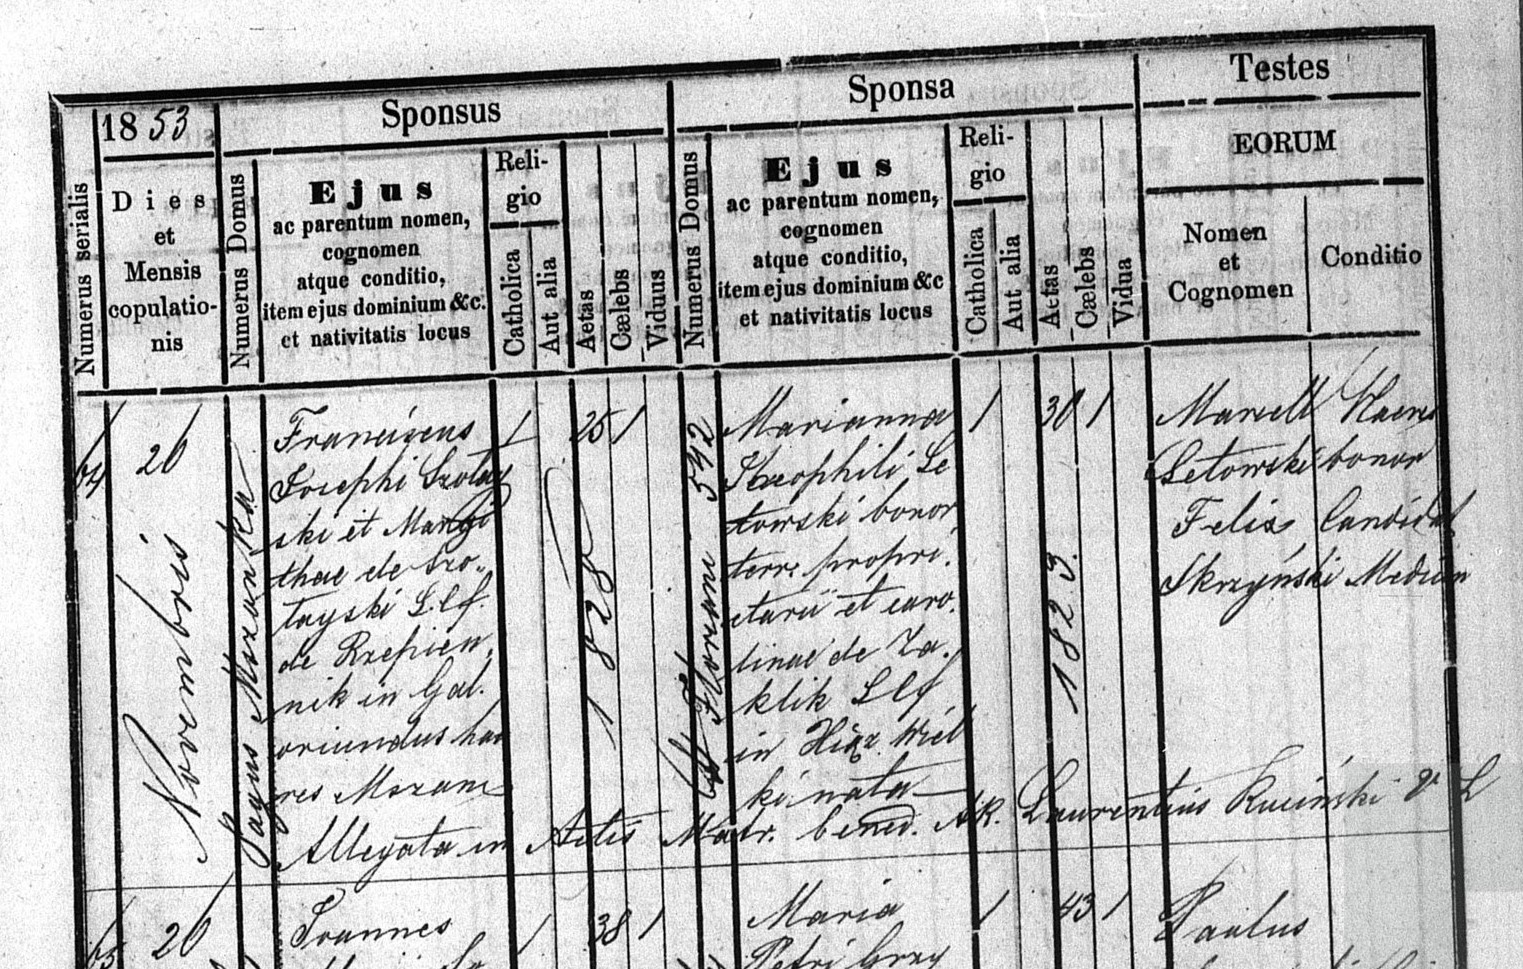 1853
Sponsus
Sponsa
Testes
Numerus serialis
Dies
et
Mensis
copulatio-
nis
Numerus Domus
Ejus
ac parentum nomen,
cognomen
atque conditio,
item ejus dominium &c.
et nativitatis locus
Reli-
gio
Catholica
Aut alia
Aetas
Cælebs
Viduus
Numerus Domus
Ejus
ac parentum nomen,
cognomen
atque conditio,
item ejus dominium &c
et nativitatis locus
Reli-
gio
Catholica
Aut alia
Aetas
Cælebs
Vidua
EORUM
Nomen
et
Cognomen
Conditio
64
20
Novembris
Pagus Mszanka
Franciscus
Josephi Szotay
ski et Marga
thae de Szo-
tayski S. lf.
de Rzepien
nik in Gal.
oriundus hae
res Mszane
1
25 1
1828
St Floriani 542
Marianna
Theophili Le
towski bonor
terr. propri.
etarii et caro.
linae de Za.
klik S lf
in Wiel
ki nata
1
30 1
1823.
Marcell
Letowski
Felix
Skrzyński
Haeres
bonor
Candidat
Medicin
Allegata in Actis Matr. bened. AR. Laurentius Kuciński
65
20
Joannes
1
38 1
Maria
Petri Grzy
1
43 1
Paulus